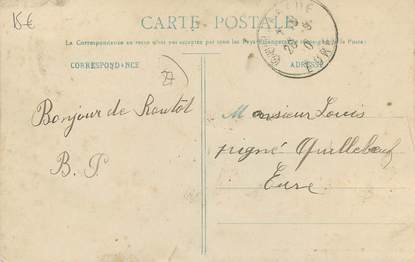 15€
CARTE POSTALE
La Correspondance au recto n'est pas acceptée par tous les Pays Étrangers de la Poste.
CORRESPONDANCE
ADRESSE
27
Bonjour de Routot
B. P
Monsieur Louis
pigné Quillebeuf
Eure